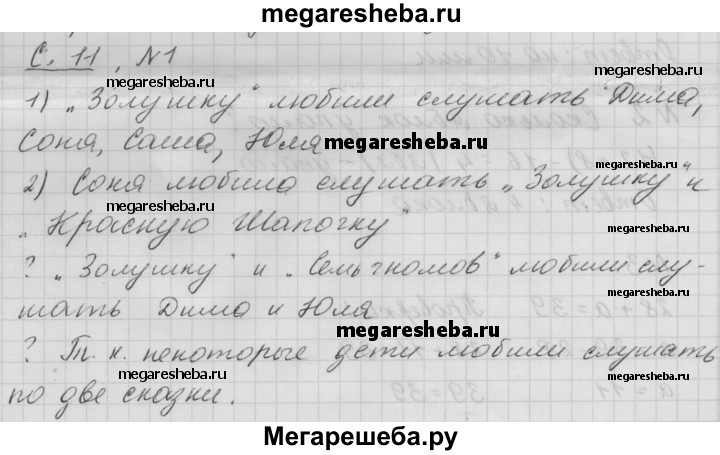 megaresheba.ru
С. 11, №1
megaresheba.ru megaresheba.ru
1) „Золушку" любили слушать Дима,
Соня, Саша, Юля megaresheba.ru
2) Соня любила слушать „Золушку" и
megaresheba.ru megaresheba.ru
„Красную Шапочку"
? „Золушку" и „Семь гномов" любили слу-
шать Дима и Юля
megaresheba.ru
? Т. к. некоторые дети любили слушать
megaresheba.ru megaresheba.ru
по две сказки.
Мегарешеба.ру